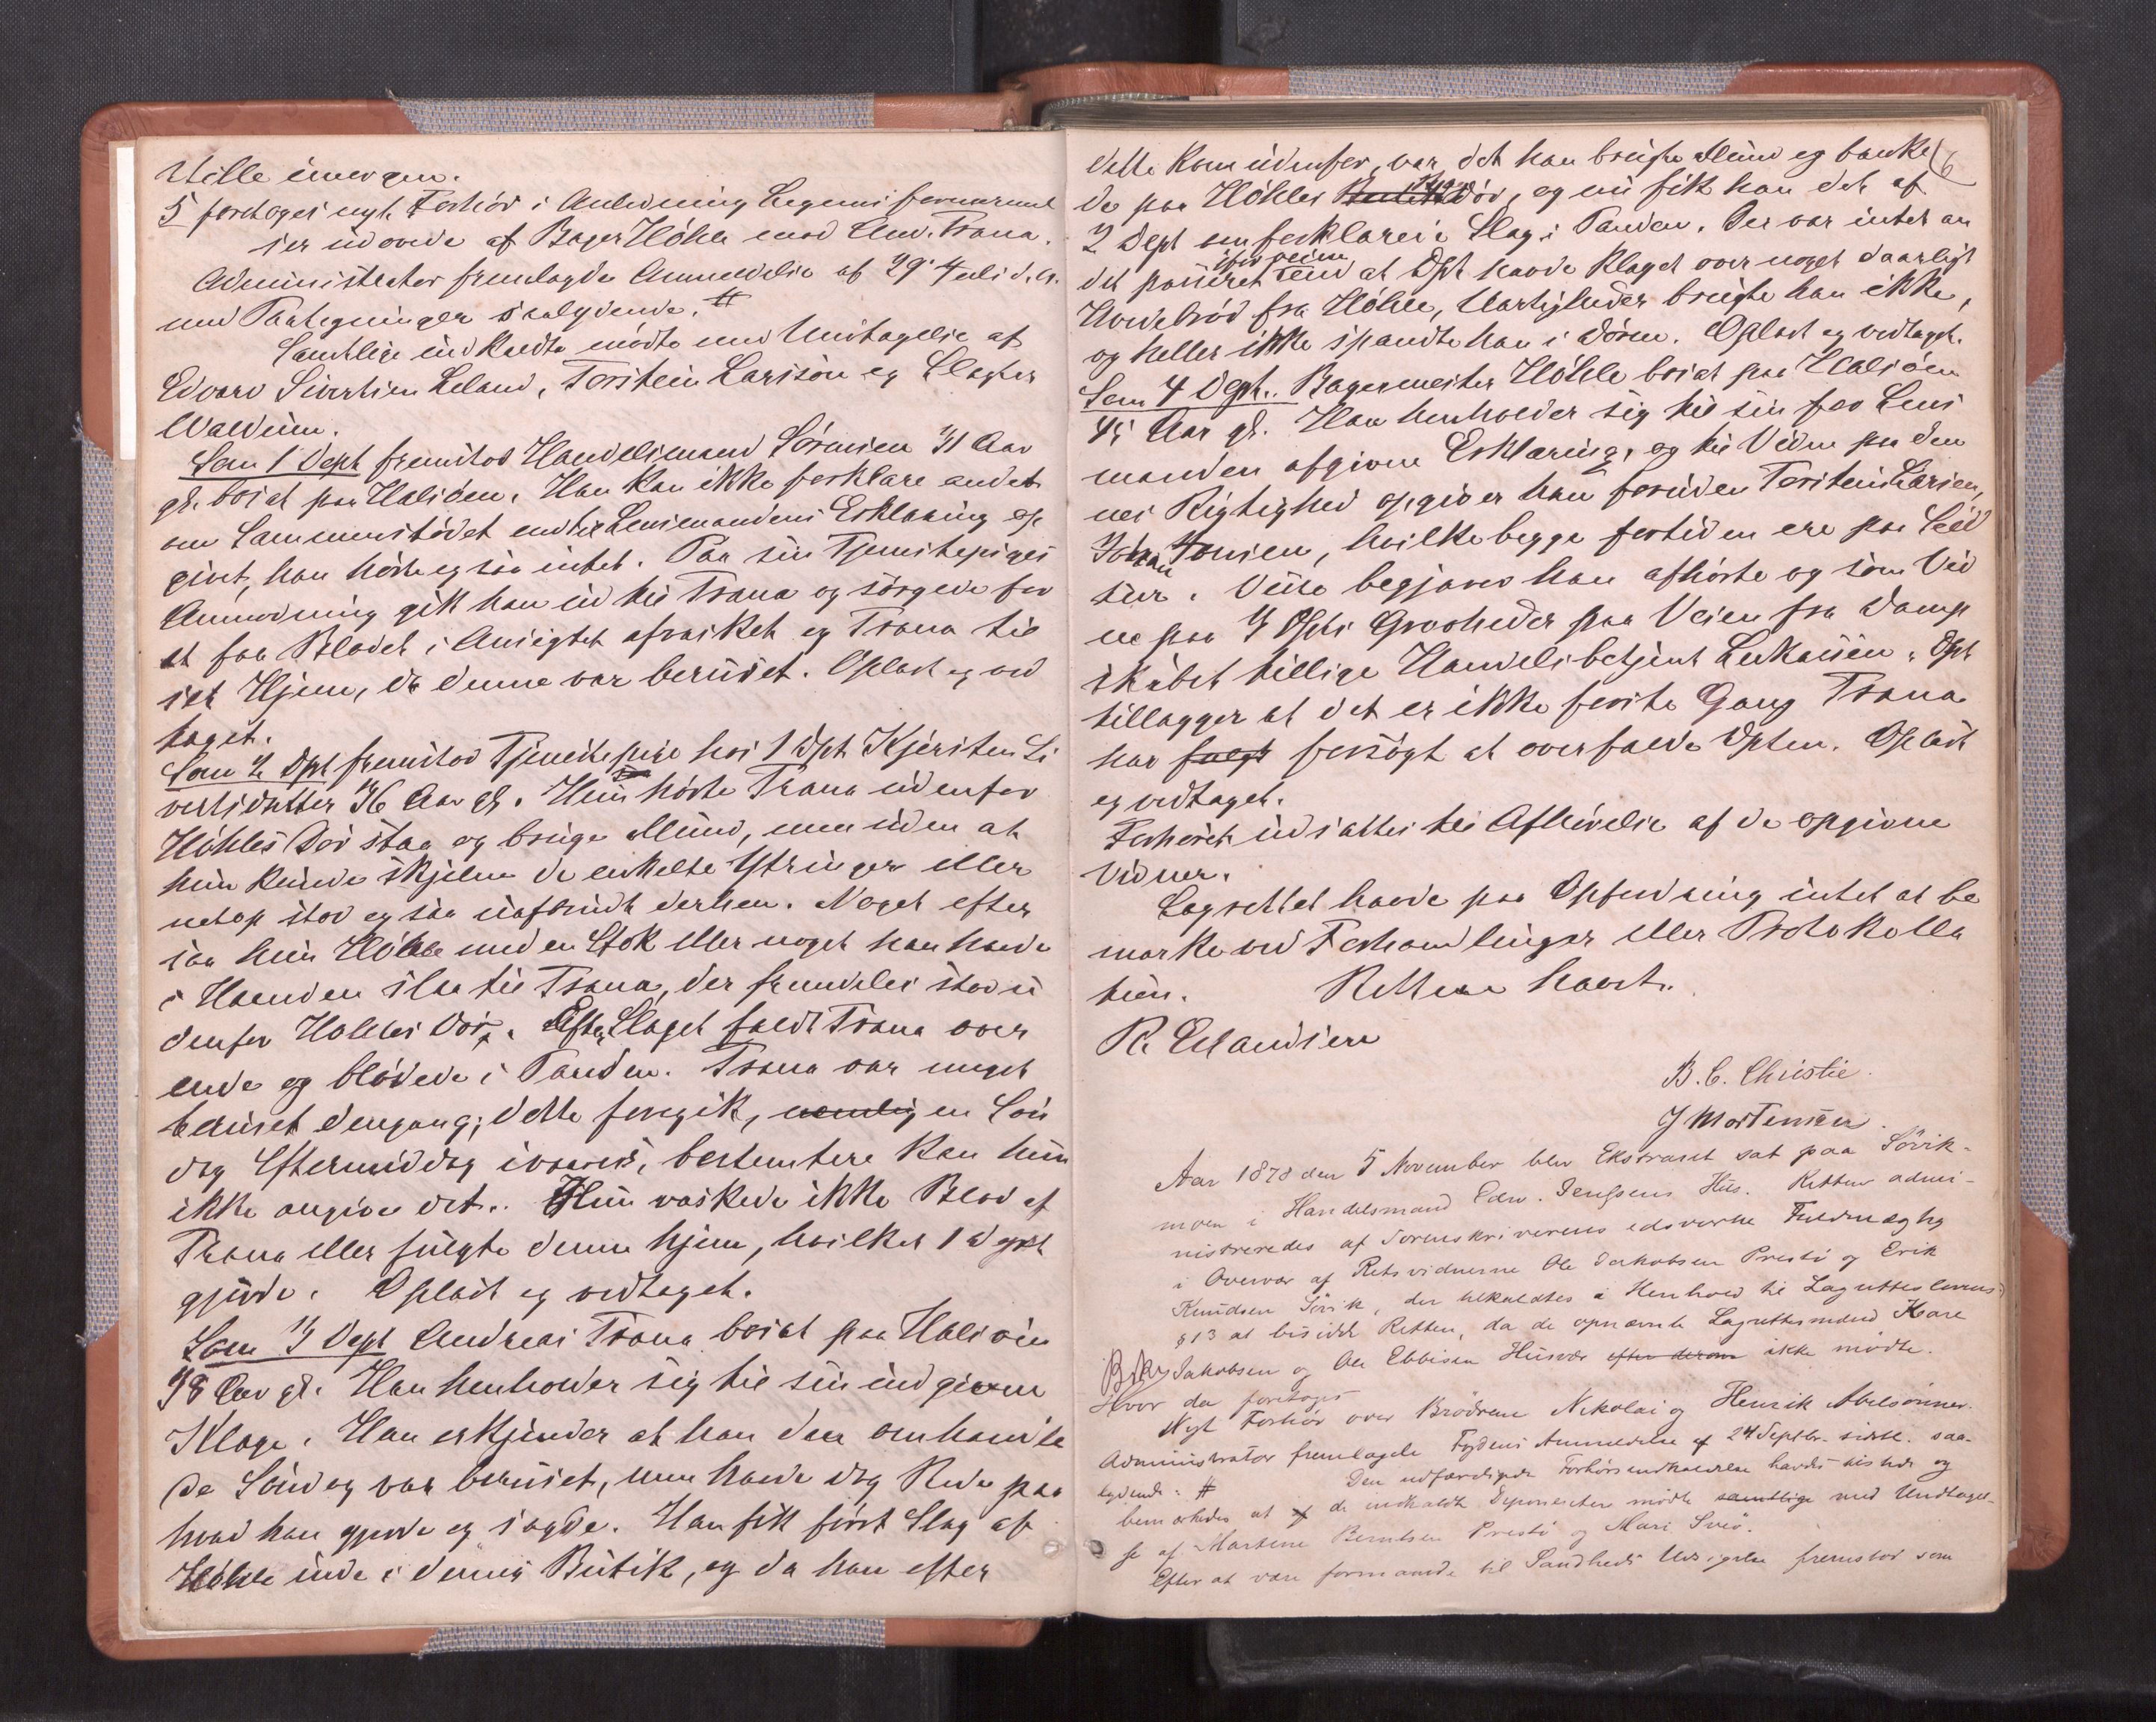 Stille imorgen.
5 foretoges nyt Forhör i Anledning Legems fornærmel
ser udövede af Bager Höhle mod And. Trana.
Administrator fremlagde Anmeldelse af 29 Juli d. A.
med Paategninger saalydende. #
Samtlige indkaldte mödte med Undtagelse af
Edvard Sivertsen Leland, Torstein Larsson og Slagter
Waldum.
Som 1 Dept fremstod Handelsmand Sörensen 31 Aar
gl. bosat paa Halsöen. Han kan ikke forklare andet
om Sammenstödet end til Lensmandens Erklæring op
givet, han hörte og saa intet. Paa sin Tjenestepiges
Anmodning gik han ud til Trana og sörgede for
at faa Blodet i Ansigtet afvasket og Trana til
sit Hjem, da denne var beruset. Oplæst og ved
taget.
Som 2 Dpt fremstod Tjenestepige hos 1 Dpt Kjersten Si
vertsdatter 36 Aar gl. Hun hörte Trana udenfor
Höhles Dör staa og bruge Mund, men uden at
hun kunde skjelne de enkelte Ytringer eller
netop stod og saa uafbrudt derhen. Noget efter
saa hun Höhle med en Stok eller noget han havde
i Haanden slaa til Trana, der fremdeles stod u
denfor Höhles Dör. Efter Slaget faldt Trana over
ende og blödede i Panden. Trana var meget
beruset dengang; dette foregik, nemlig en Sön
dag Eftermiddag ivaares, bestemtere kan hun
ikke angive det.. Hun vaskede ikke Blod af
Trana eller fulgte denne hjem, hvilket 1 Dept
gjorde. Oplæst og vedtaget.
Som 3 Dept Andreas Trana bosat paa Halsöen
38 Aar gl. Han henholder sig til sin indgivne
Klage. Han erkjender at han den omhandle
de Söndag var beruset, men havde dog Rede paa
hvad han gjorde og sagde. Han fik först Slag af
Höhle inde i dennes Butik, og da han efter
6
dette kom udenfor, var det han brugte Mund og banke
de paa Höhles Butiks Dör, og nu fik han det af
2 Dept omforklarede Slag i Panden. Der var intet an
det passeret end at Dpt havde klaget over noget daarligt
Hvedebröd fra Höhle, Uartigheder brugte han ikke,
og heller ikke spændte han i Dören. Oplæst og vedtaget.
Som 4 Dept.. Bagermester Höhle bosat paa Halsöen
45 Aar gl. Han henholder sig til sin for Lens
manden afgivne Erklæring, og til Vidne paa den
nes Rigtighed opgiver han foruden Torstein Larsen,
Johan Jonsen, hvilke begge fortiden ere paa Sild
tur. Disse begjæres han afhörte og som Vid
ne paa 3 Dpts Grovheder paa Veien fra Damp
skibet tillige Handelsbetjent Lukassen. Dpt
tillægger at det er ikke förste Gang Trana
har fulgt forsögt at overfalde Dpten. Oplæst
og vedtaget.
Forhöret udsattes til Afhörelse af de opgivne
Vidner.
Lagrettet havde paa Opfordring intet at be
mærke ved Forhandlinger eller Protokolla
tion. Retten hævet.
R. Erlandsen
B. C. Christie.
J Mortensen.
Aar 1878 den 5 November blev Ekstraret sat paa Sövik-
moen i Handelsmand Edw. Jenssens Hus. Retten admi-
nistreredes af Sorenskriverens edsvorne Fuldmægtig
i Overvær af Retsvidnerne Ole Jakobsen Prestö og Erik
Knudsen Sövik, der tilkaldtes i Henhold til Lagretteslovens
§ 13 at beside Retten, da de opnævnte Lagrettesmænd Kare
Jakobsen og Ole Ebbesen Husvær efter derom ikke mödte.
Hvor da foretoges
Nyt Forhör over Brödrene Nikolai og Henrik Abelsönner.
Administrator fremlagde Fogdens Anmeldelse af 24 Septbr. sidstl. saa-
lydende: # Den udfærdigede Forhörsindkaldelse havdes tilstede og
bemærkedes at af de indkaldte Deponenter mödte samtlige med Undtagel-
se af Martine Berntsen Prestö og Mari Sviö.
Efter at være formanede til Sandheds Udsigelse fremstod som